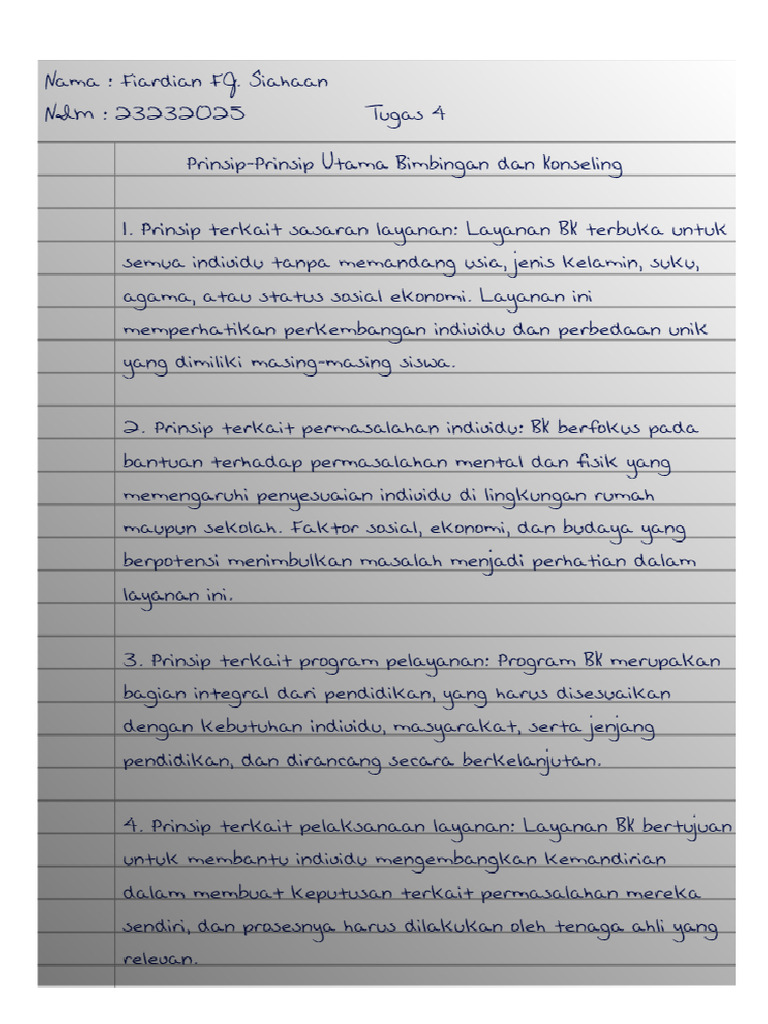 Nama : Fiardian FG. Siahaan
NIm : 23232025 Tugas 4
Prinsip-Prinsip Utama Bimbingan dan Konseling
1. Prinsip terkait sasaran layanan: Layanan BK terbuka untuk
semua individu tanpa memandang usia, jenis kelamin, suku,
agama, atau status sosial ekonomi. Layanan ini
memperhatikan perkembangan individu dan perbedaan unik
yang dimiliki masing-masing siswa.
2. Prinsip terkait permasalahan individu: BK berfokus pada
bantuan terhadap permasalahan mental dan fisik yang
memengaruhi penyesuaian individu di lingkungan rumah
maupun sekolah. Faktor sosial, ekonomi, dan budaya yang
berpotensi menimbulkan masalah menjadi perhatian dalam
layanan ini.
3. Prinsip terkait program pelayanan: Program BK merupakan
bagian integral dari pendidikan, yang harus disesuaikan
dengan kebutuhan individu, masyarakat, serta jenjang
pendidikan, dan dirancang secara berkelanjutan.
4. Prinsip terkait pelaksanaan layanan: Layanan BK bertujuan
untuk membantu individu mengembangkan kemandirian
dalam membuat keputusan terkait permasalahan mereka
sendiri, dan prosesnya harus dilakukan oleh tenaga ahli yang
relevan.